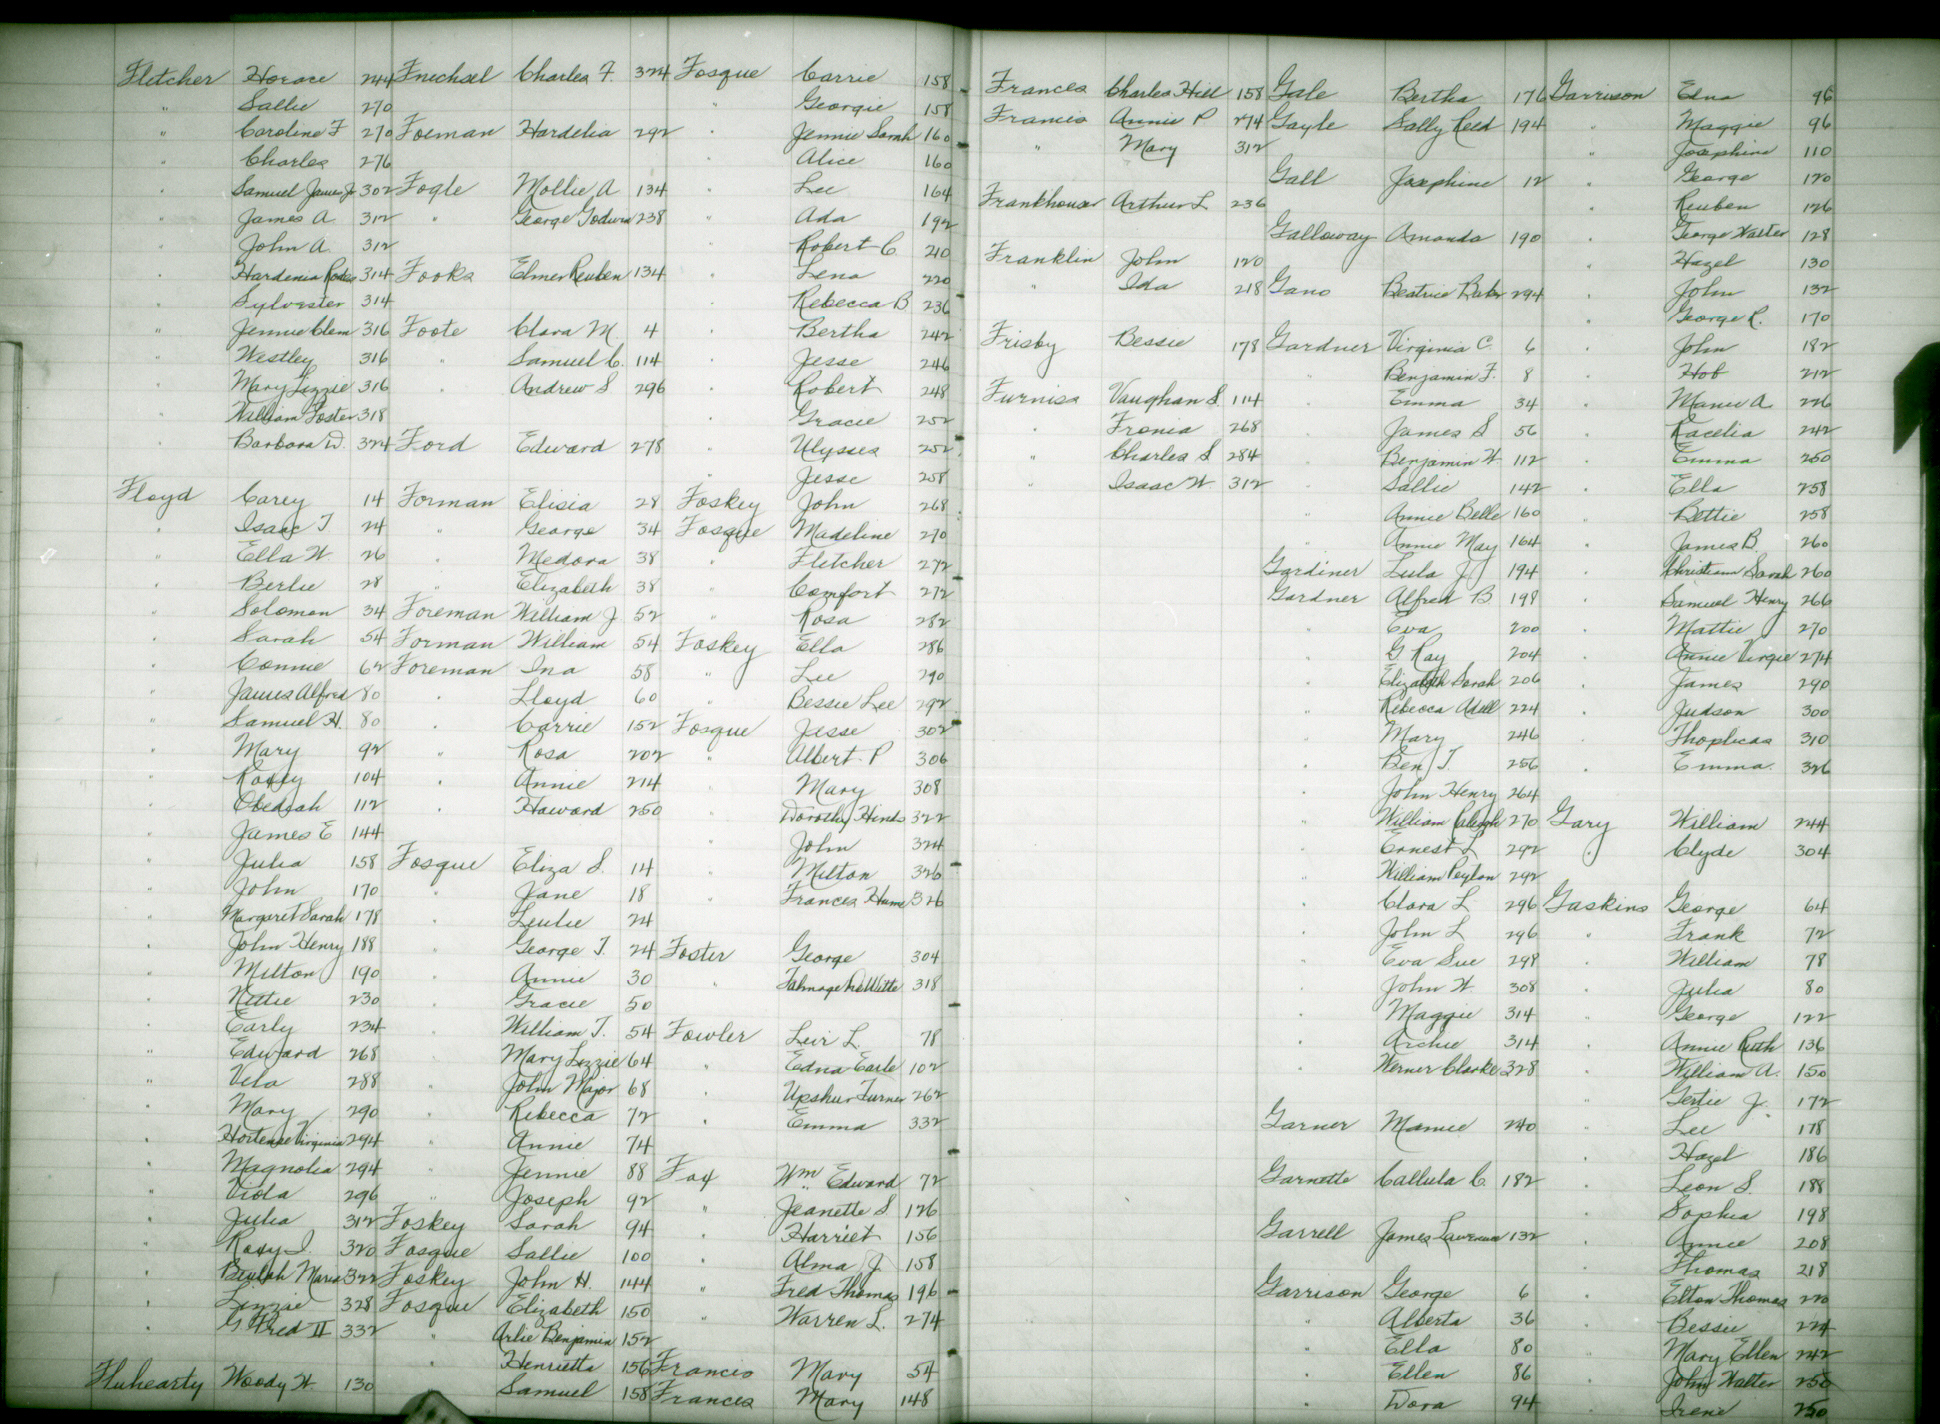 Fletcher Horace 244
" Sallie 270
" Caroline F 270
" Charles 276
" Samuel James Jr 302
" James A 312
" John A. 312
" Hardenia 314
" Sylvester 314
" Jennie Clem 316
" Westley 316
" Mary Lizzie 316
" William Foster 318
" Barbara D. 324
Floyd Carey 14
" Isaac T 24
" Ella W. 26
" Bertie 28
" Solomon 34
" Sarah 54
" Connie 62
" James Alfred 80
" Samuel H. 80
" Mary 92
" Roxey 104
" Obediah 112
" James E 144
" Julia 158
" John 170
" Margaret Sarah 178
" John Henry 188
" Milton 190
" Nettie 230
" Early 234
" Edward 268
" Vela 288
" Mary 290
" Hortense Virginia 294
" Magnolia 294
" Viola 296
" Julia 312
" Roxy I. 320
" Beulah Maria 322
" Lizzie 328
" G Fred II 332
Fluhearty Woody W. 130
Fnechsel Charles F. 324
Foeman Hardelia 292
Fogle Mollie A. 134
" George Godwin 238
Fooks Elmer Reuben 134
Foote Clara M. 4
" Samuel C. 114
" Andrew S 296
Ford Edward 278
Forman Elisia 28
" George 34
" Medora 38
" Elizabeth 38
Foreman William J. 52
Forman William 54
Foreman Ina 58
" Lloyd 60
" Carrie 152
" Rosa 202
" Annie 214
" Haward 250
Fosque Eliza S. 14
" Jane 18
" Leulie 24
" George T. 24
" Annie 30
" Gracie 50
" William T. 54
" Mary Lizzie 64
" John Major 68
" Rebecca 72
" Annie 74
" Jennie 88
" Joseph 92
Foskey Sarah 94
Fosque Sallie 100
Foskey John H. 144
Fosque Elizabeth 150
" Arlie Benjamin 152
" Henrietta 156
Samuel 158
Fosque Carrie 158
" Georgie 158
" Jennie Sarah 160
" Alice 160
" Lee 164
" Ada 192
" Robert C. 210
" Lena 220
" Rebecca B 236
" Bertha 242
" Jesse 246
" Robert 248
" Gracie 252
" Ulysses 252
" Jesse 258
Foskey John 268
Fosque Madeline 270
" Fletcher 272
" Comfort 272
" Rosa 282
Foskey Ella 286
" Lee 290
" Bessie Lee 292
Fosque Jesse 302
" Albert P 306
" Mary 308
" Dorothy Hinds 322
" John 324
" Milton 326
" Frances Hume 326
Foster George 304
" Talmage DeWitte 318
Fowler Levi L. 78
" Edna Earle 102
" Upshur Turner 262
" Emma 332
Fox Wm Edward 72
" Jeanette S 126
" Harriet 156
" Alma J. 158
" Fred Thomas 196
" Warren L. 274
Francis Mary 54
Frances Mary 148
Frances Charles Hill 158
Francis Annie P 274
" Mary 312
Frankhouser Arthur L 236
Franklin John 120
" Ida 218
Frisby Bessie 178
Furniss Vaughan S. 114
" Fronia 268
" Charles S 284
" Isaac W. 312
Gale Bertha 176
Gayle Sally Reed 194
Gall Josephine 12
Galloway Amanda 190
Gano Beatrice Baker 294
Gardner Virginia C. 6
" Benjamin F. 8
" Emma 34
" James S 56
" Benjamin W 112
" Sallie 142
" Annie Belle 160
" Annie May 164
Gardiner Lula J 194
Gardner Alfred B. 198
" Eva 200
" G Ray 204
" Elizabeth Sarah 206
" Rebecca Adell 224
" Mary 246
" Ben T. 256
" John Henry 264
" William Caleigh 270
" Ernest L 292
" William Peyton 292
" Clara L. 296
" John L 296
" Eva Sue 298
" John W. 308
" Maggie 314
" Archie 314
" Werner Clarke 328
Garner Mamie 240
Garnette Callula C. 182
Garrell James Lawrence 132
Garrison George 6
" Alberta 36
" Ella 80
" Ellen 86
" Dora 94
Garrison Edna 96
" Maggie 96
" Josephine 110
" George 120
" Reuben 126
" George Walter 128
" Hazel 130
" John 132
" George R. 170
" John 182
" Hob 212
" Mamie A. 226
" Racelia 242
" Emma 250
" Ella 258
" Bettie 258
" James B. 260
" Christiana Sarah 260
" Samuel Henry 266
" Mattie 270
" Annie Virgie 274
" James 290
" Judson 300
" Thoplicas 310
" Emma 326
Gary William 244
" Clyde 304
Gaskins George 64
" Frank 72
" William 78
" Julia 80
" George 122
" Annie Ruth 136
" William A. 150
" Gertie J. 172
" Lee 178
" Hazel 186
" Leon S. 188
" Sophia 198
" Annie 208
" Thomas 218
" Elton Thomas 220
" Bessie 224
" Mary Ellen 242
" John Walter 250
" Irene 250